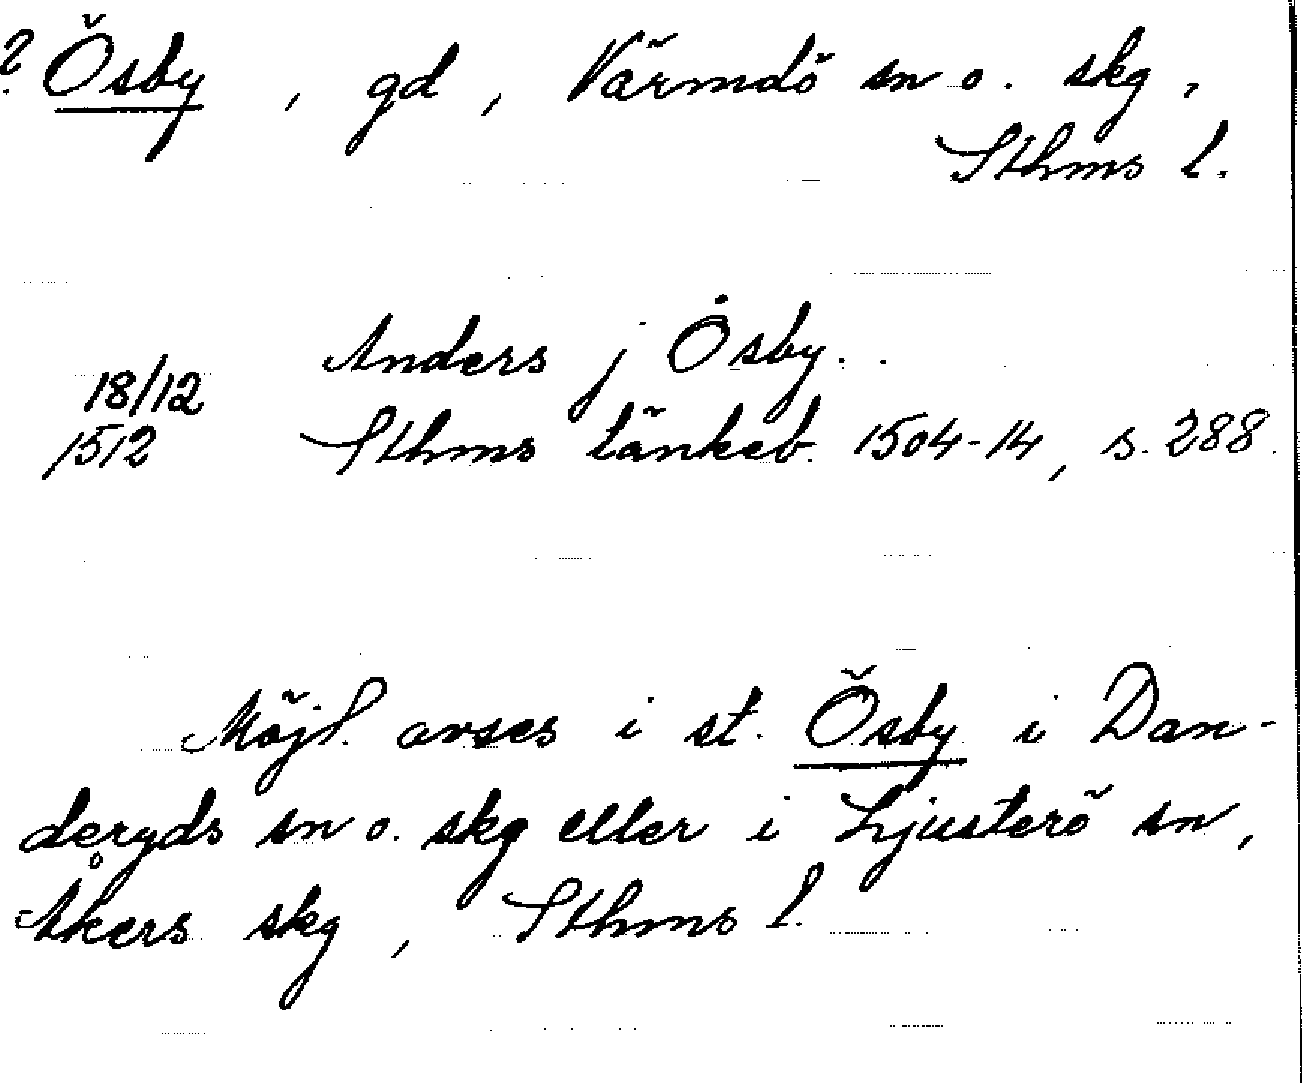 ? Ösby, gd, Värmdö sn o. skg,
Sthms l.
Anders j Ösby. .
18/12
1512 Sthms tänkeb. 1504-14, s. 288.
Möjl. avses i st. Ösby i Dan-
deryds sn o. skg eller i Ljusterö sn,
Åkers skg, Sthms l.